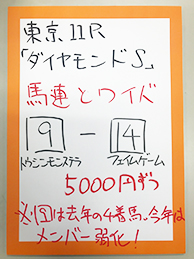 東京11R
「ダイヤモンドS」
馬連とワイド
9 - 14
トウシンモンステラ フェイムゲーム
5000円ずつ
※9は去年の4着馬。今年は
メンバー弱化!